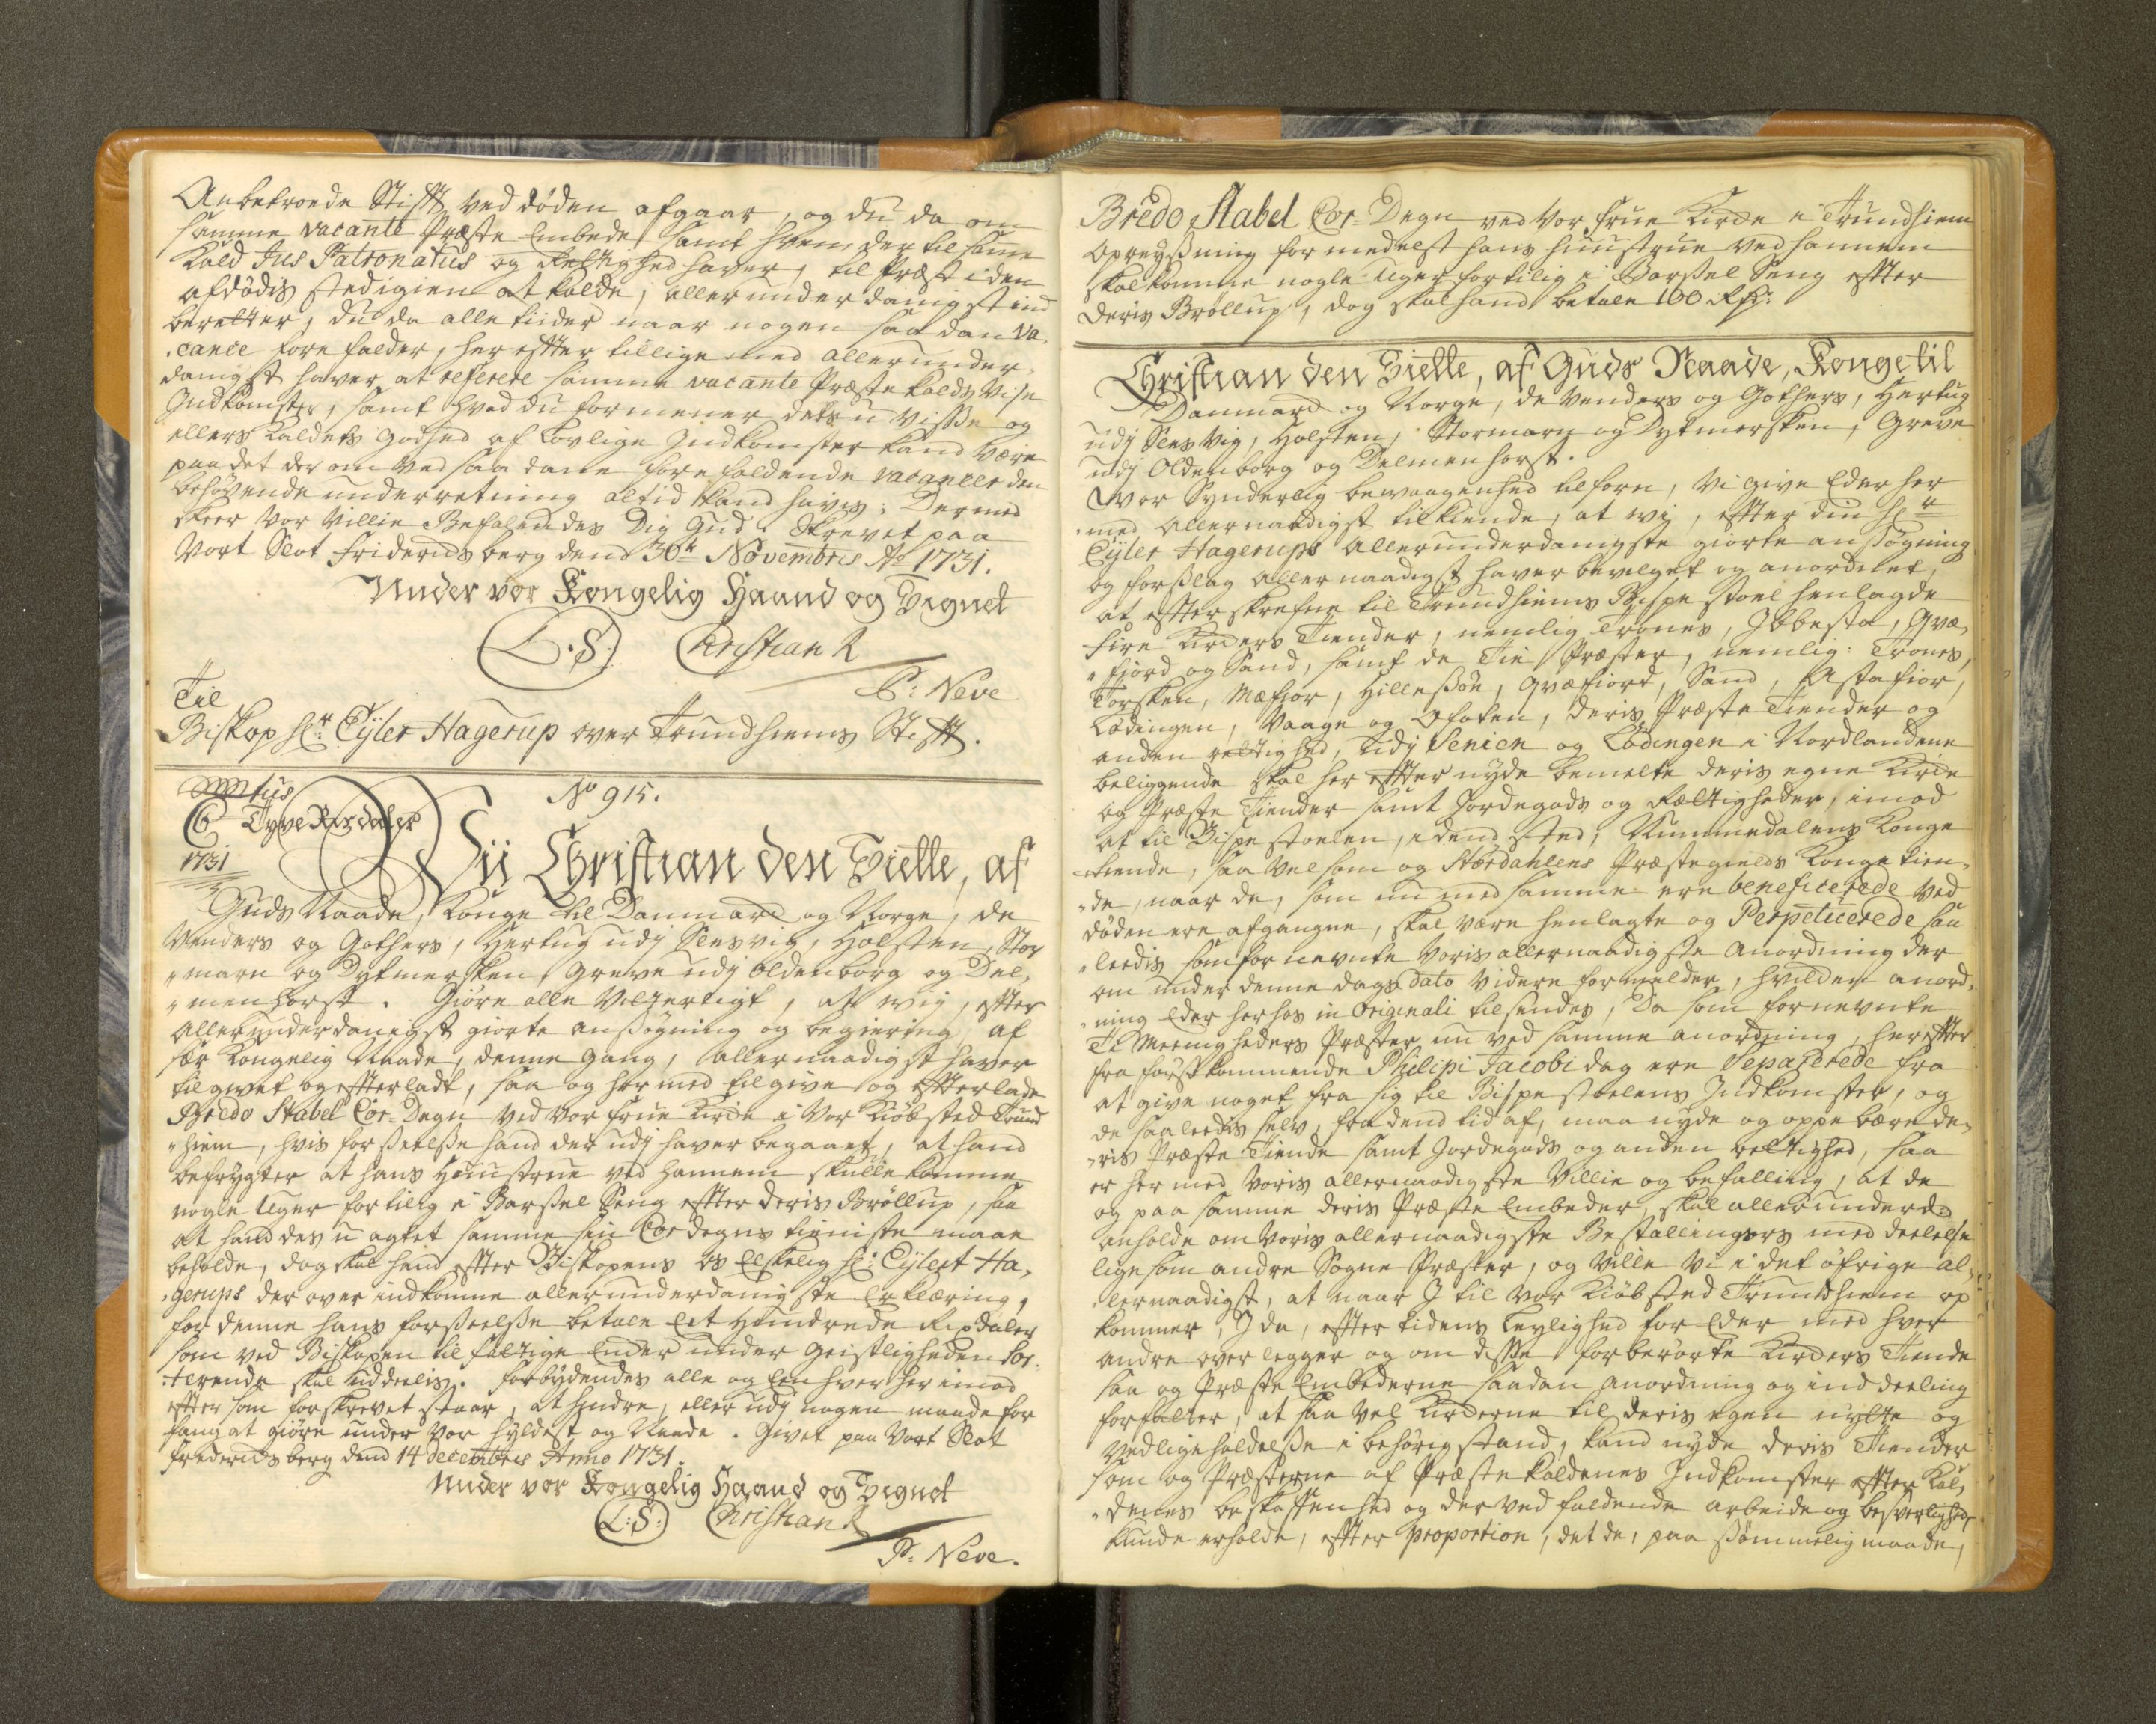 Anbetroede Stifft ved døden afgaar, og du da om
samme vacante Præste Embede samt hvem der til samme
Kald Jus Patronatus og Rettighed haver, til Præst i den
afdødis sted igien at kalde, allerunderdanigst ind
beretter, du da alle tiider naar nogen saadan va-
cance fore falder, her effter tillige med allerunder-
danigst haver at referere samme vacante Præste Kalds Visse
Indkomster, samt hvad du formener dets u visse og
ellers Kaldets godhed af Lovlige Indkomster kand være
paa det der om ved saa dane fore faldende vacancer den
behøvende underretning altid kand haves; Dermed
skeer Vor Villie Befalendes Dig Gud. Skrevet paa
Vort Slot Friderichsberg dend 30te Novembris Ao 1731.
Under vor Kongelig Haand og Signet
L.S. Christian R
P: Neve
Til
Biskop Hr: Eyler Hagerup over Trundhiems Stifft.
No 915.
C6 Tyve Rixdaler
1731
Vii Christian den Siette, af
Guds Naade, Konge til Danmark og Norge, de
Venders og Gothers, Hertug udj Slesvig, Holsten, Stor
"marn og Dytmersken, Greve udj Oldenborg og Del-
"menhorst. Giøre alle Vitterligt, at wij, effter
allerunderdanigst giorte ansøgning og begiering, af
sær Kongelig Naade, denne gang, allernaadigst haver
tilgivet og effterladt, saa og her med tilgive og effterlade
Bredo Stabel Cor-Degn ved Vor Frue Kirke i Vor Kiøbsted Trund
"hiem, hvis forseelse hand der udj haver begaaet, at hand
befrygter at hans Huustrue ved hannem skulle komme
nogle Uger for tilig i Barsel Seng effter deris Brøllup, saa
at hand des u agtet samme sin Cor degns tieniste maae
beholde, dog skal hand effter Biskopens os Elskelig Hr: Eylert Ha-
"gerups der over indkomne allerunderdanigste Erklæring,
for denne hans forseelse betale Eet Hundrede Rixdaler
som ved Biskopen til fattige Enker under Geistligheden Sor-
"terende skal uddeelis. Forbydendes alle og Een hver her imod
effter som forskrevet staar, at hindre, eller udj nogen maade for
fang at giøre under Vor Hyldest og Naade. Givet paa Vort Slot
Friderichsberg dend 14 Decembris Anno 1731.
Under vor Kongelig Haand og Signet
L:S: Christian R
P: Neve.
Bredo Stabel Cor-Degn ved Vor Frue Kirke i Trundhiem
Opreysning formedelst hans Huustrue ved hannem
skal komme nogle Uger for tilig i Barsel Seng effter
deris Brøllup, dog skal hand betale 100 Rdr:
Christian den Siette, af Guds Naade, Konge til
Danmark og Norge, de Venders og Gothers, Hertug
udj Slesvig, Holsten, Stormarn og Dytmersken, Greve
udj Oldenborg og Delmenhorst.
Vor Synderlig bevaagenhed tilforn, Vi give Eder her
"med allernaadigst tilkiende, at wij, effter din Hr
Eyler Hagerups allerunderdanigste giorte ansøgning
og forslag allernaadigst haver bevilget og anordnet,
at effterskrefne til Trundhiems Bispe stoel henlagde
fire Kirkers Tiender, nemlig Trones, Ibbestad, Qvæ-
"fiord og Sand, samt de Tie Præster, nemlig: Trones,
Torsken, Mæfior, Hillesøe, Qvæfiord, Sand, Astafior,
Lødingen, Vaage og Ofoten, deris Præste Tiender og
anden rettighed, udj Senien og Lødingen i Nordlandene
beliggende skal her effter nyde bemelte deris egne Kirke
og Præste Tiender samt Jordegods og Rættigheder, imod
at til Bispe stoelen, i dend sted, Nummedalens Konge
tiende, saa vel som og Størdahlens Præstegields Konge tien-
"de, naar de, som nu med samme ere beneficerede ved
døden ere afgangne, skal være henlagte og Perpetuerede saa
"leedis som fornevnte Voris allernaadigste Anordning der
om under denne dags dato videre formelder, hvilken anord-
"ning Eder herhos in Originali tilsendes, Da som fornevnte
Ti Meenigheders Præster nu ved samme anordning, her effter
fra først kommende Philipi Jacobi dag ere Separerede fra
at give noget fra sig til Bispe stoelens Indkomster, og
de saaleedis selv, fra dend tid af, maa nyde og oppe bære de-
"ris Præste Tiende samt Jordegods og anden rettighed, saa
er her med Voris allernaadigste Villie og befalling, at de
og paa samme deris Præste Embeder, skal allerunderd:
anholde om Voris allernaadigste Bestallingers meddeelelse
lige som andre Sogne Præster, og ville Vi i det øfrige al-
"lernaadigst, at naar I til Vor Kiøbsted Trundhiem op
kommer, I da, effter tidens Leylighed for Eder med hver
andre overlegger og om disse forberørte Kirkers Tiende
saa og Præste Embederne saadan anordning og inddeeling
forfatter, at saa vel Kirkerne til deris egen nytte og
Vedligeholdelse i behørig stand, kand nyde deris Tiender
som og Præsterne af Præste kaldenes Indkomster effter Kal-
"denes beskaffenhed og der ved faldende arbeide og besværlighed
kunde erholde, effter proportion, det de, paa sømmelig maade,